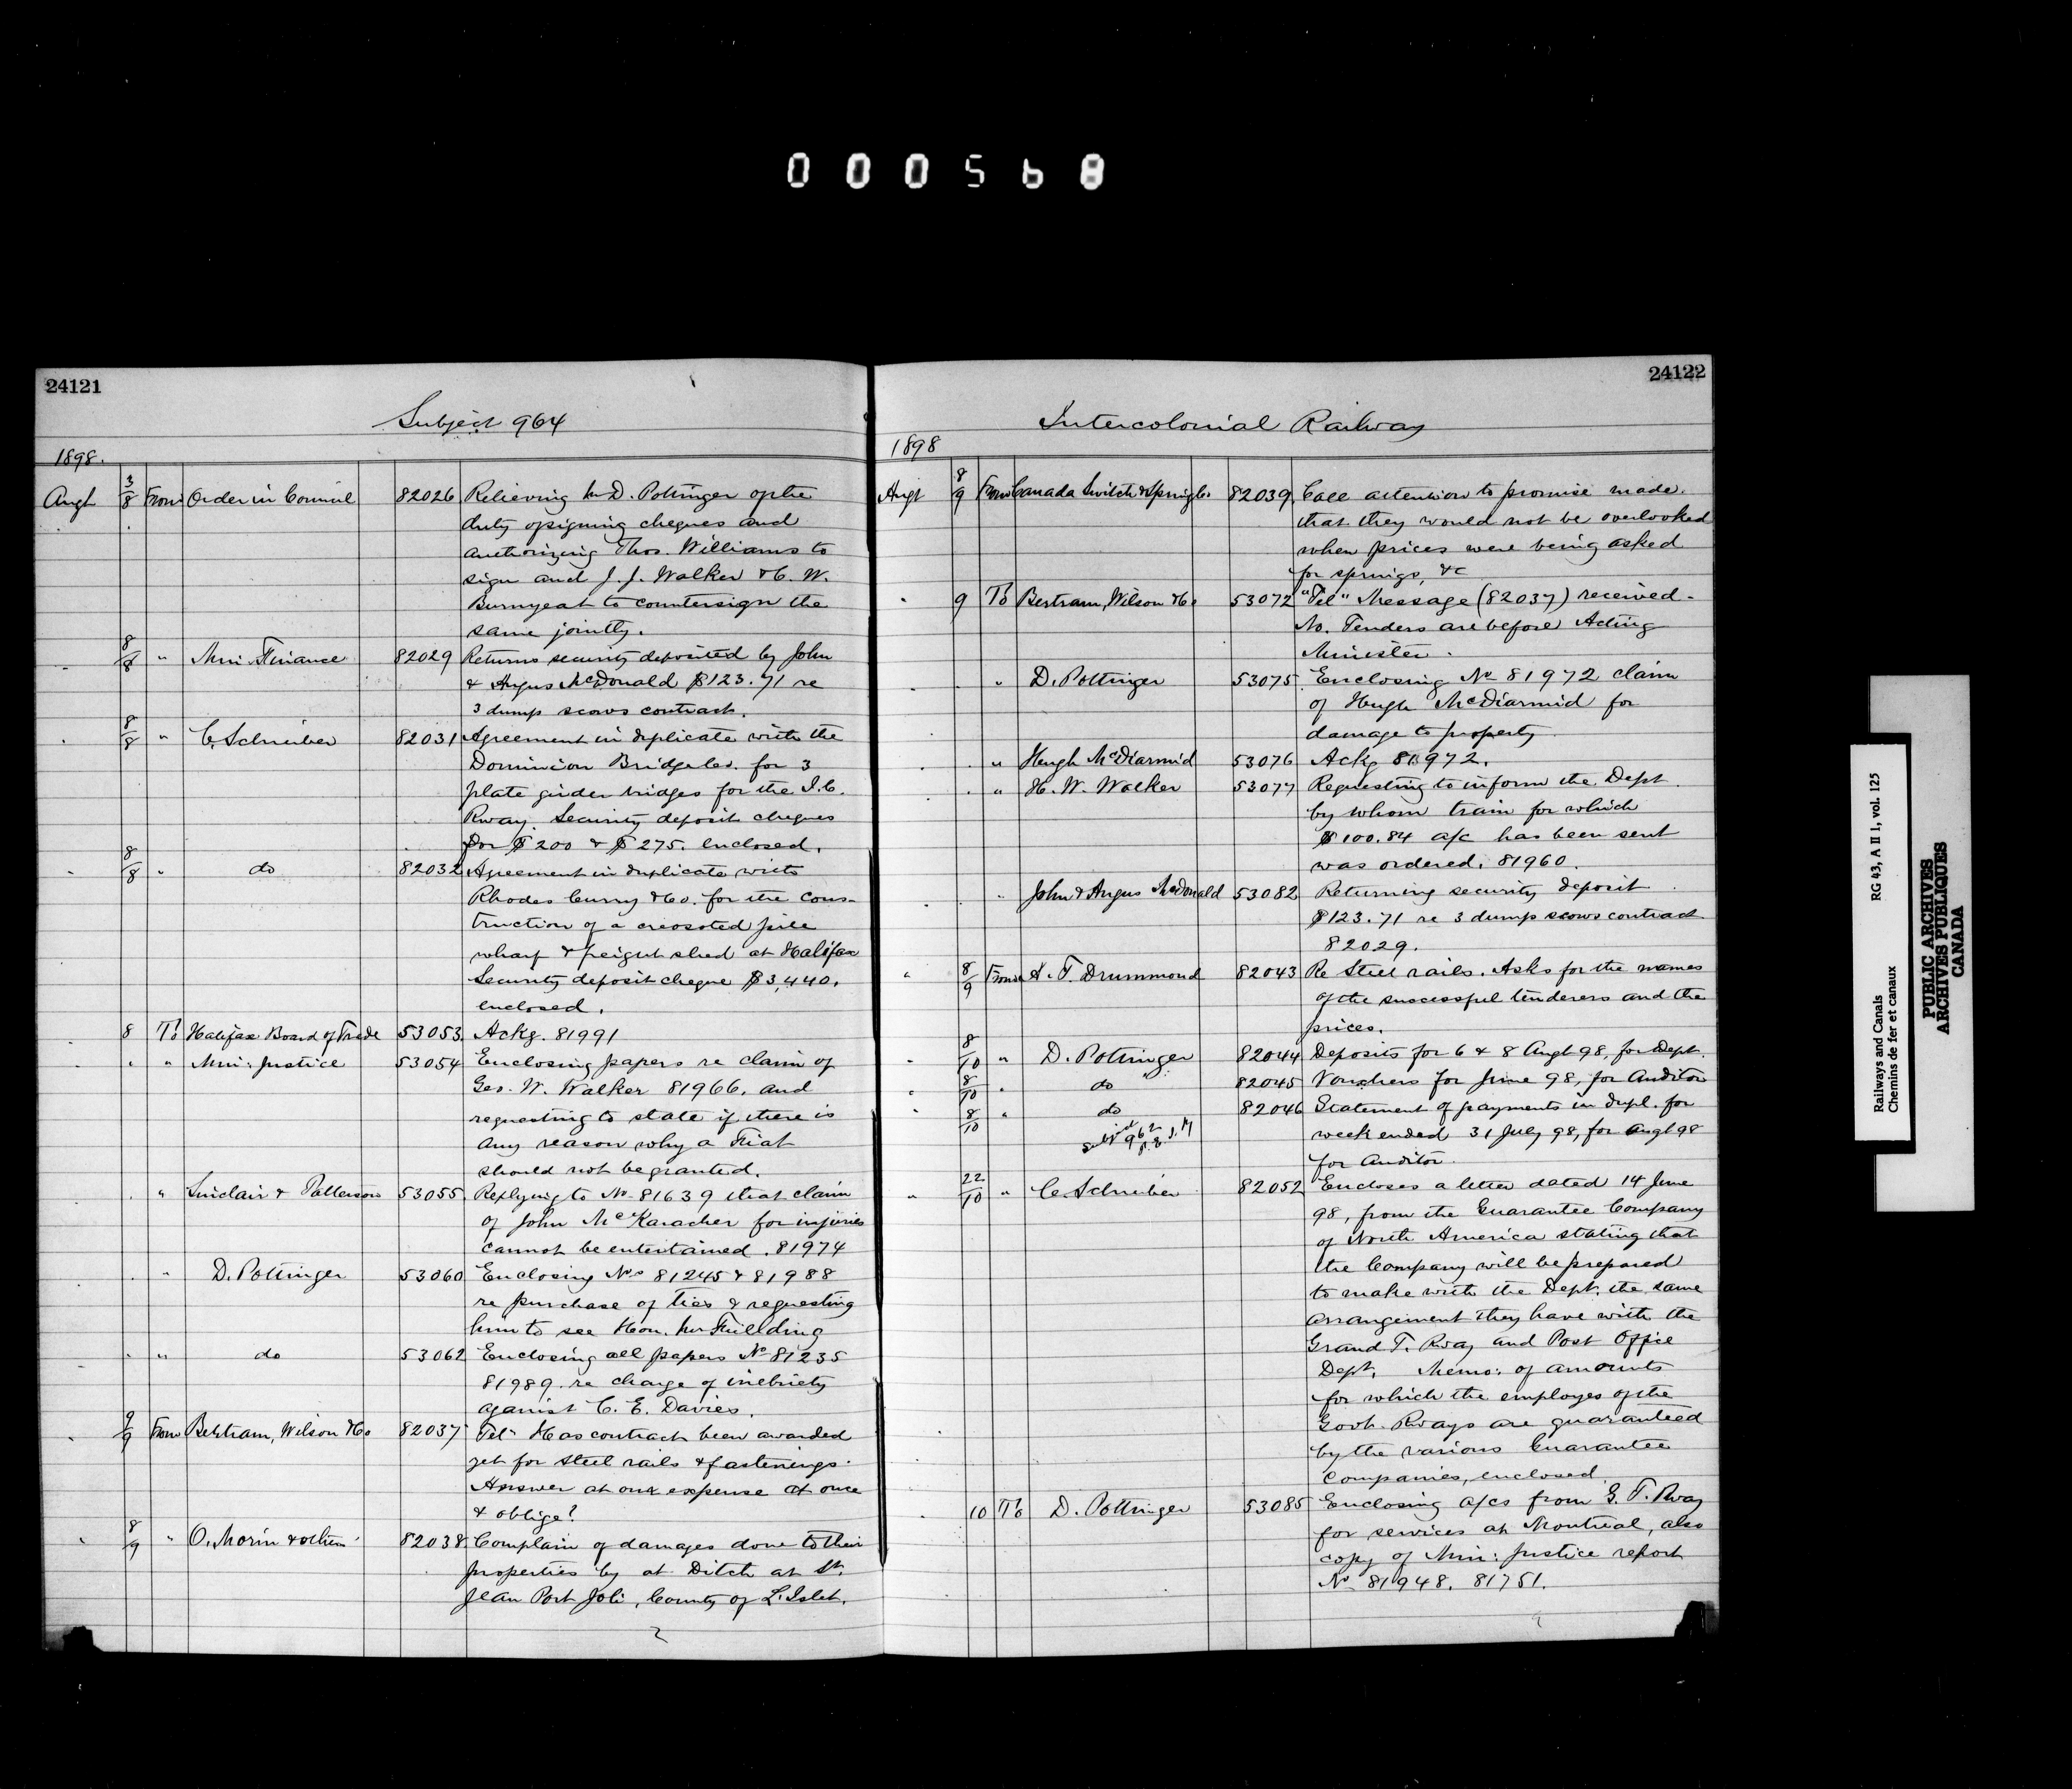 000568
24121
Subject 964
1898.
Augt 3/8 From Order in Council 82026 Relieving Mr D. Pottinger of the
duty of signing cheques and
authorizing Thos. Williams to
sign and J. J. Walker & C. W.
Burnyeat to countersign the
same jointly.
" 8/8 " Min Finance 82029 Returns security deposited by John
& Angus McDonald $123.71 re
3 dump scows contract.
" 8/8 " C. Schreiber 82031 Agreement in duplicate with the
Dominion Bridge Co. for 3
plate girder bridges for the I.C.
Rway. Security deposit cheques
for $200 & $275. enclosed.
" 8/8 " do 82032 Agreement in duplicate with
Rhodes Curry & Co. for the cons-
truction of a creosoted pile
wharf & freight shed at Halifax
Security deposit cheque $3,440.
enclosed.
" 8 To Halifax Board of Trade 53053 Ackg. 81991
" " " Min: Justice 53054 Enclosing papers re claim of
Geo. W. Walker 81966. and
requesting to state if there is
any reason why a Fiat
should not be granted.
" " Sinclair & Patterson 53055 Replying to No 81639 that claim
of John McKaracher for injuries
cannot be entertained. 81974
" " D. Pottinger 53060 Enclosing Nos 81245 & 81988
re purchase of ties & requesting
him to see Hon. Mr Fieilding
" " " do 53062 Enclosing all papers No 81235
81989 re charge of inebriety
against C. E. Davies.
" 9/9 From Bertram, Wilson & Co 82037 Tel- Has contract been awarded
yet for steel rails & fastenings.
Answer at our expense at once
& oblige?
" 8/9 " O. Morin & others 82038 Complain of damages done to their
properties by at Ditch at St.
Jean Port Joli, County of L'Islet.
24122
Intercolonial Railway
1898
Augt 8/9 From Canada Switch & Spring Co. 82039 Call attention to promise made.
that they would not be overlooked
when prices were being asked
for springs, &c
" 9 To Bertram, Wilson & Co 53072 "Tel" Message (82037) received.
No. Tenders are before Acting
Minister.
" " " D. Pottinger 53075 Enclosing No 81972 claim
of Hugh McDiarmid for
damage to property
" " " Hugh McDiarmid 53076 Ackg 81972.
" " " H. W. Walker 53077 Requesting to inform the Dept
by whom train for which
$100.84 a/c has been sent
was ordered. 81960.
" " John & Angus McDonald 53082 Returning security deposit
$123.71 re 3 dump scows contract
82029.
" 8/9 From A. T. Drummond 82043 Re Steel rails. Asks for the names
of the successful tenderers and the
prices.
" 8/10 " D. Pottinger 82044 Deposits for 6 & 8 Augt 98, for Dept.
" 8/10 " do 82045 Vouchers for June 98, for Auditor
" 8/10 " do 82046 Statement of payments in dupl. for
week ended 31 July 98, for Augt 98
for Auditor.
Subject 962
" 22/10 " C. Schreiber 82052 Encloses a letter dated 14 June
98, from the Guarantee Company
of North America stating that
the Company will be prepared
to make with the Dept. the same
arrangement they have with the
Grand T. Rway and Post Office
Dept. Memo: of amounts
for which the employes of the
Govt. Rways are guaranteed
by the various Guarantee
Companies, enclosed.
10 To D. Pottinger 53085 Enclosing a/cs from G. T. Rway
for services at Montreal, also
copy of Min: Justice report
No 81948. 81751.
Railways and Canals RG 43, A II 1, vol. 125
Chemins de fer et canaux
PUBLIC ARCHIVES
ARCHIVES PUBLIQUES
CANADA